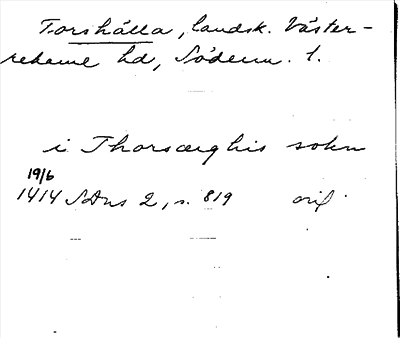 Torshälla, landsk. Väster-
rekarne hd, Söderm. l.
i Thorsærghis sokn
19/6
1414 SDns 2, s. 819 orig